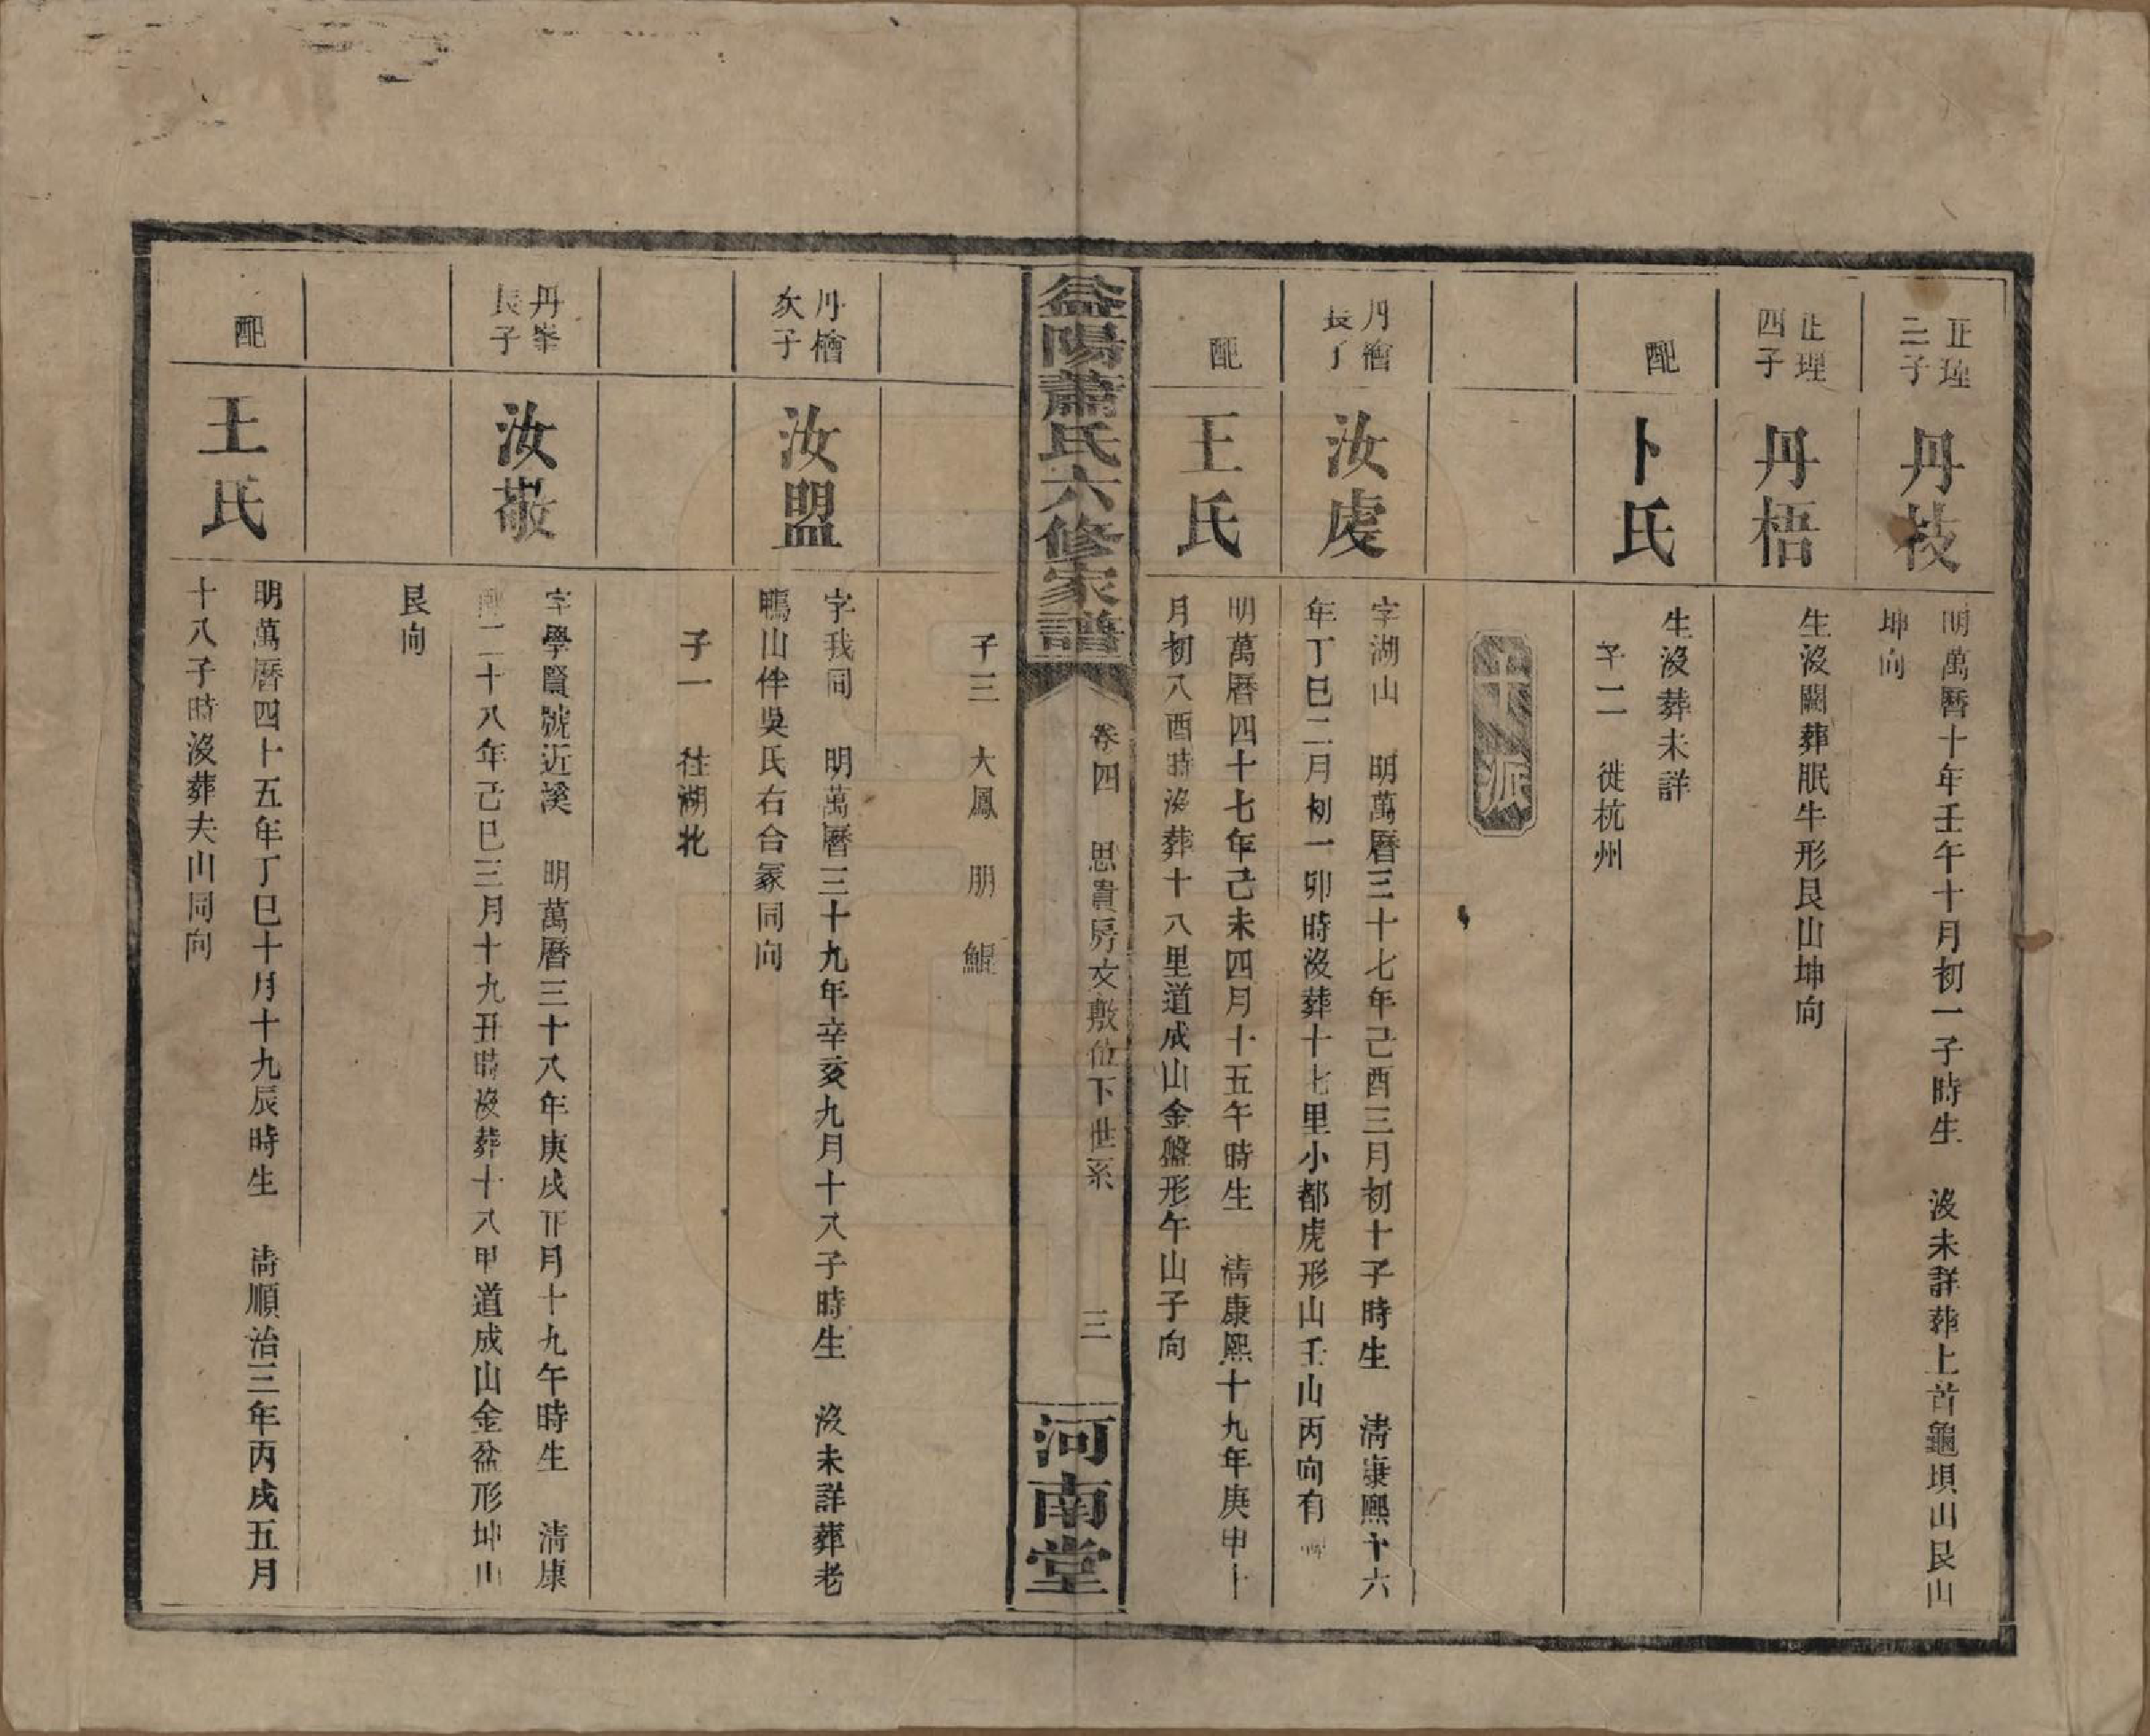 正理
三子
丹枝
明萬曆十年壬午十月初一子時生　沒未詳葬上苦龜垻山艮山
坤向
正理
四子
丹梧
生沒闕葬眠牛形艮山坤向
配
卜氏
生沒葬未詳
子二　徙杭州
十派
丹檜
長子
汝虔
字湖山　明萬曆三十七年己酉三月初十子時生　清康熙十六
年丁巳二月初一卯時沒葬十七里小都虎形山壬山丙向有
配
王氏
明萬曆四十七年己未四月十五午時生　清康熙十九年庚申十
月初八酉時沒葬十八里道成山金盤形午山子向
益陽蕭氏六修家譜
卷四　思貴房文敷位下世系
三
河南堂
子三　大鳳　朋　鯤
丹檜
次子
汝盟
字我同　明萬曆三十九年辛亥九月十八子時生　沒未詳葬老
鴨山伴吳氏右合冢同向
子一　往湖北
丹峯
長子
汝敬
字學賢號近溪　明萬曆三十八年庚戌正月十九午時生　清康
熙二十八年己巳三月十九丑時沒葬十八甲道成山金盆形坤山
艮向
配
王氏
明萬曆四十五年丁巳十月十九辰時生　清順治三年丙戌五月
十八子時沒葬夫山同向